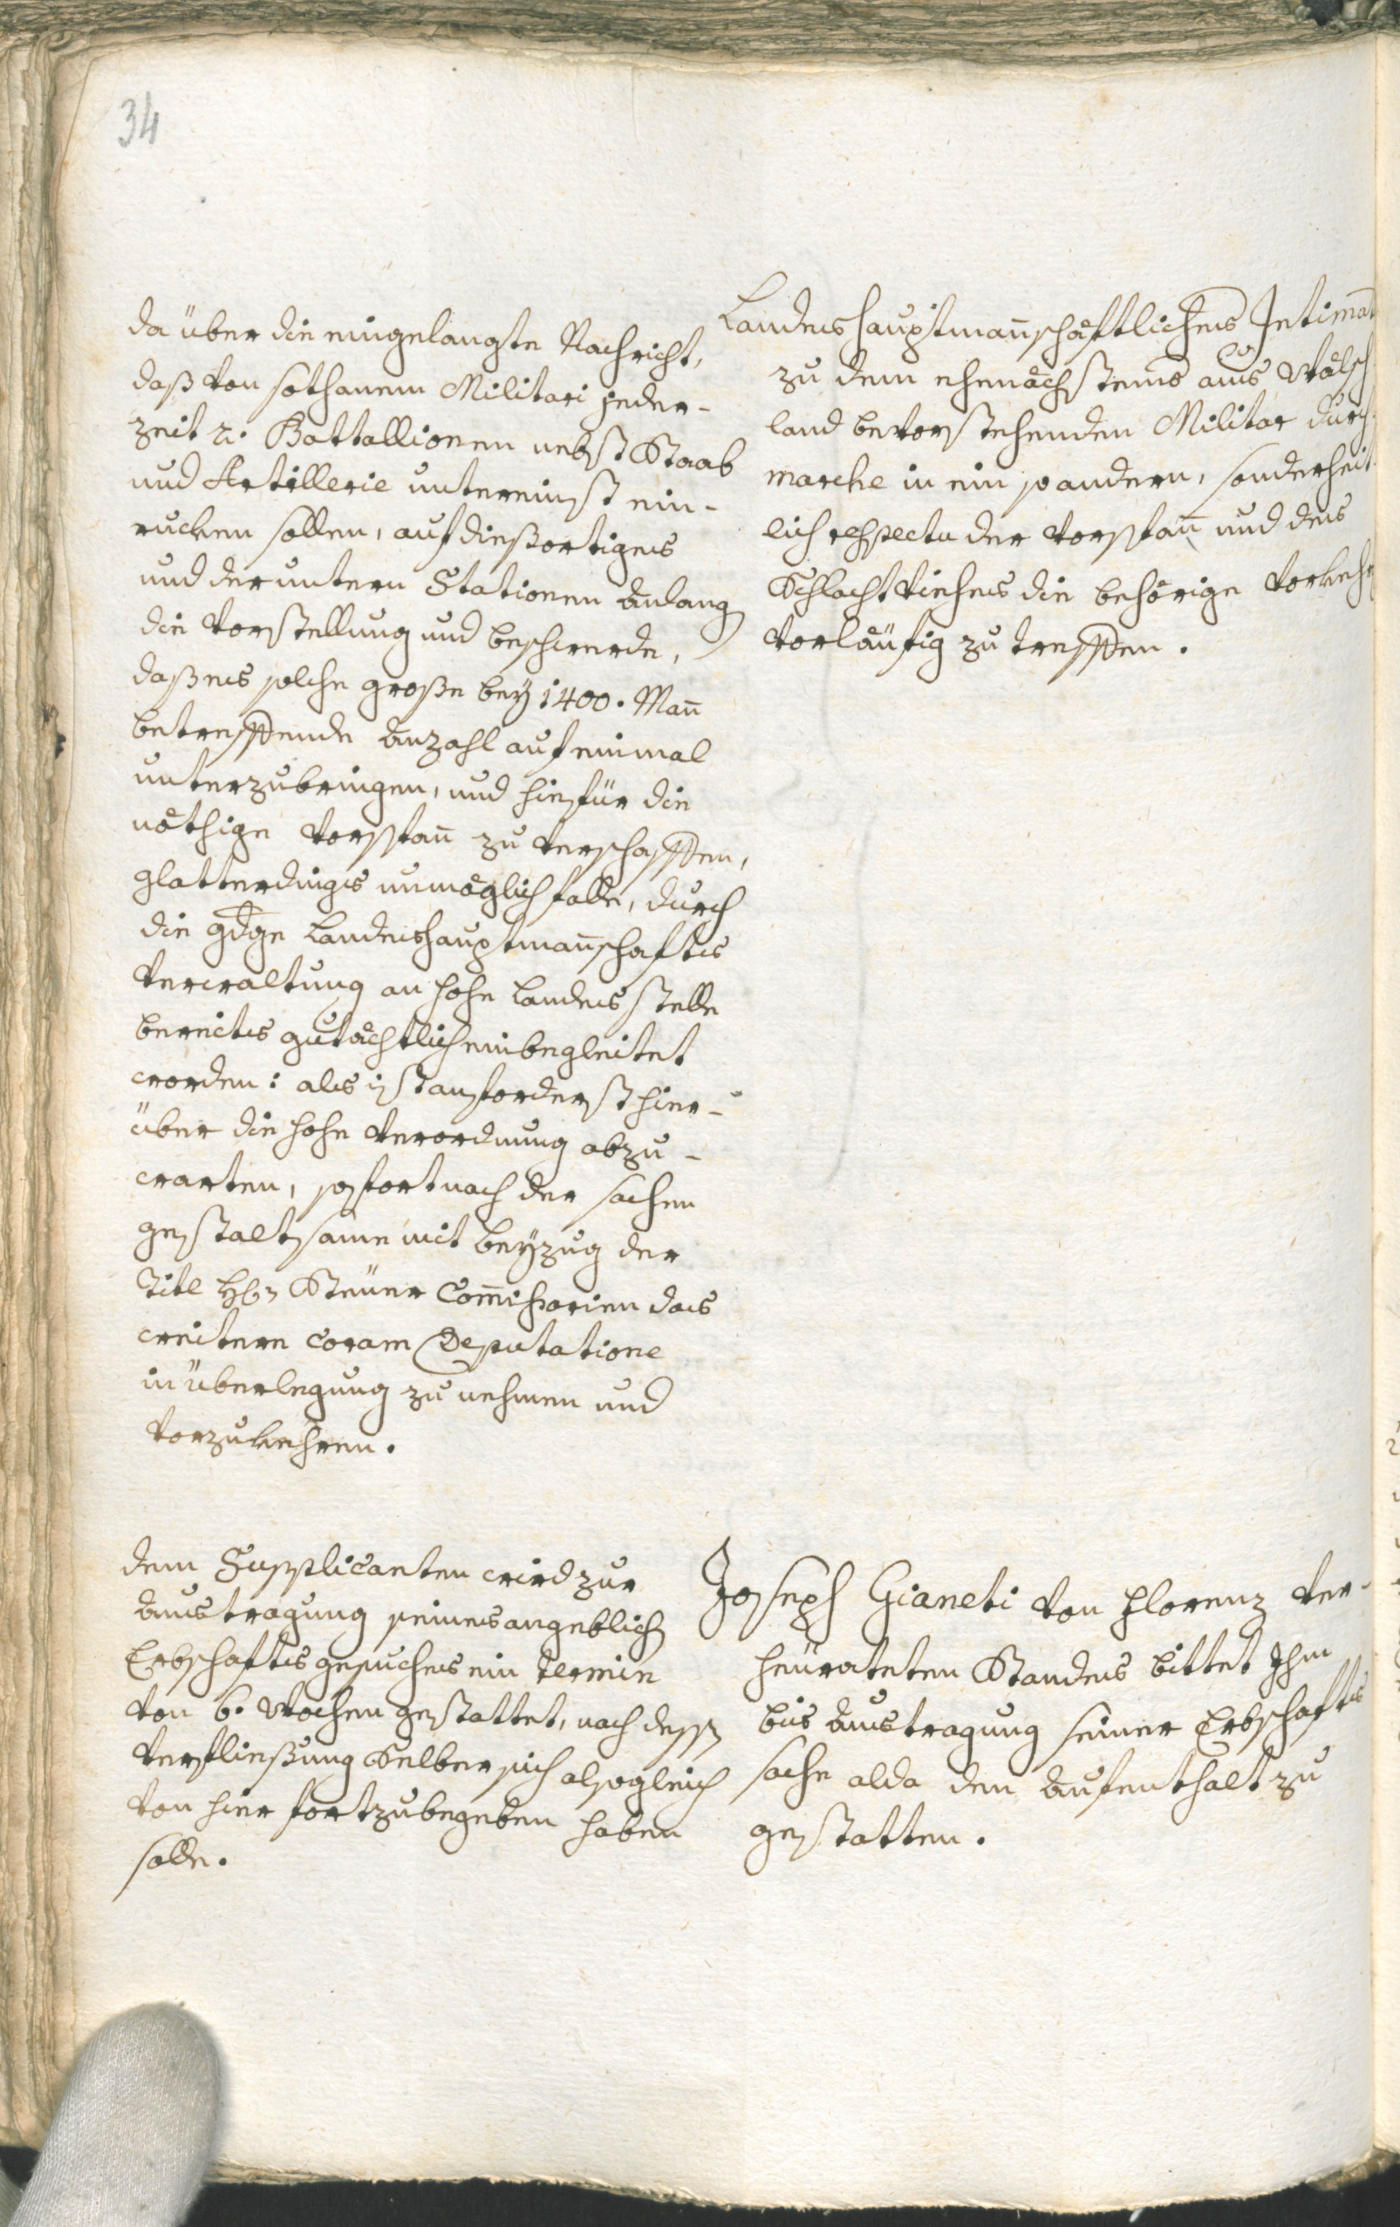 34
da über die eingelangte Nachricht,
daß von sothanem Militari jeder-
zeit 2. Battallionen nebst Staab
und Artillerie untereinst ein-
rucken sollen, auf dießortiges
und der untern Stationen Anlang
die Vorstellung und beschwerde,
daß es solche große bey 1400. Man̄
betreffende Anzahl auf einmal
unterzubringen, und hiefür die
nöthige Vorspan̄ zu verschaffen,
glatterdings unmöglich falle, durch
die gdge Landeshauptman̄schafts
Verwaltung an hohe Landesstelle
bereits gutächtlich einbegleitet
worden: als ist anforderst hier-
über die hohe Verordnung abzu-
warten, sofort nach der sachen
gestaltsame mit beyzug der
Titl Hrn Steuer Com̄issarien das
weitere coram Deputatione
in überlegung zu nehmen und
vorzukehren.
Landeshauptman̄schäftliches Intimat
zu dem ehenächstens aus Wälsch
land bevorstehenden Militar durch
marche in ein so andern, sonderheit
lich respectu der Vorspan̄ und des
Schlachtviehes die behörige Vorkehr
vorläufig zu treffen.
dem Supplicanten wird zur
Austragung seines angeblich
Erbschafts gesuches ein Termin
von 6. Wochen gestattet, nach dessen
Verfließung Selber sich alsogleich
von hier fortzubegeben haben
solle.
Joseph Gianeti von Florenz ver-
heürateten Standes bittet Ihm
bis Austragung seiner Erbschafts
sache alda den Aufenthalt zu
gestatten.